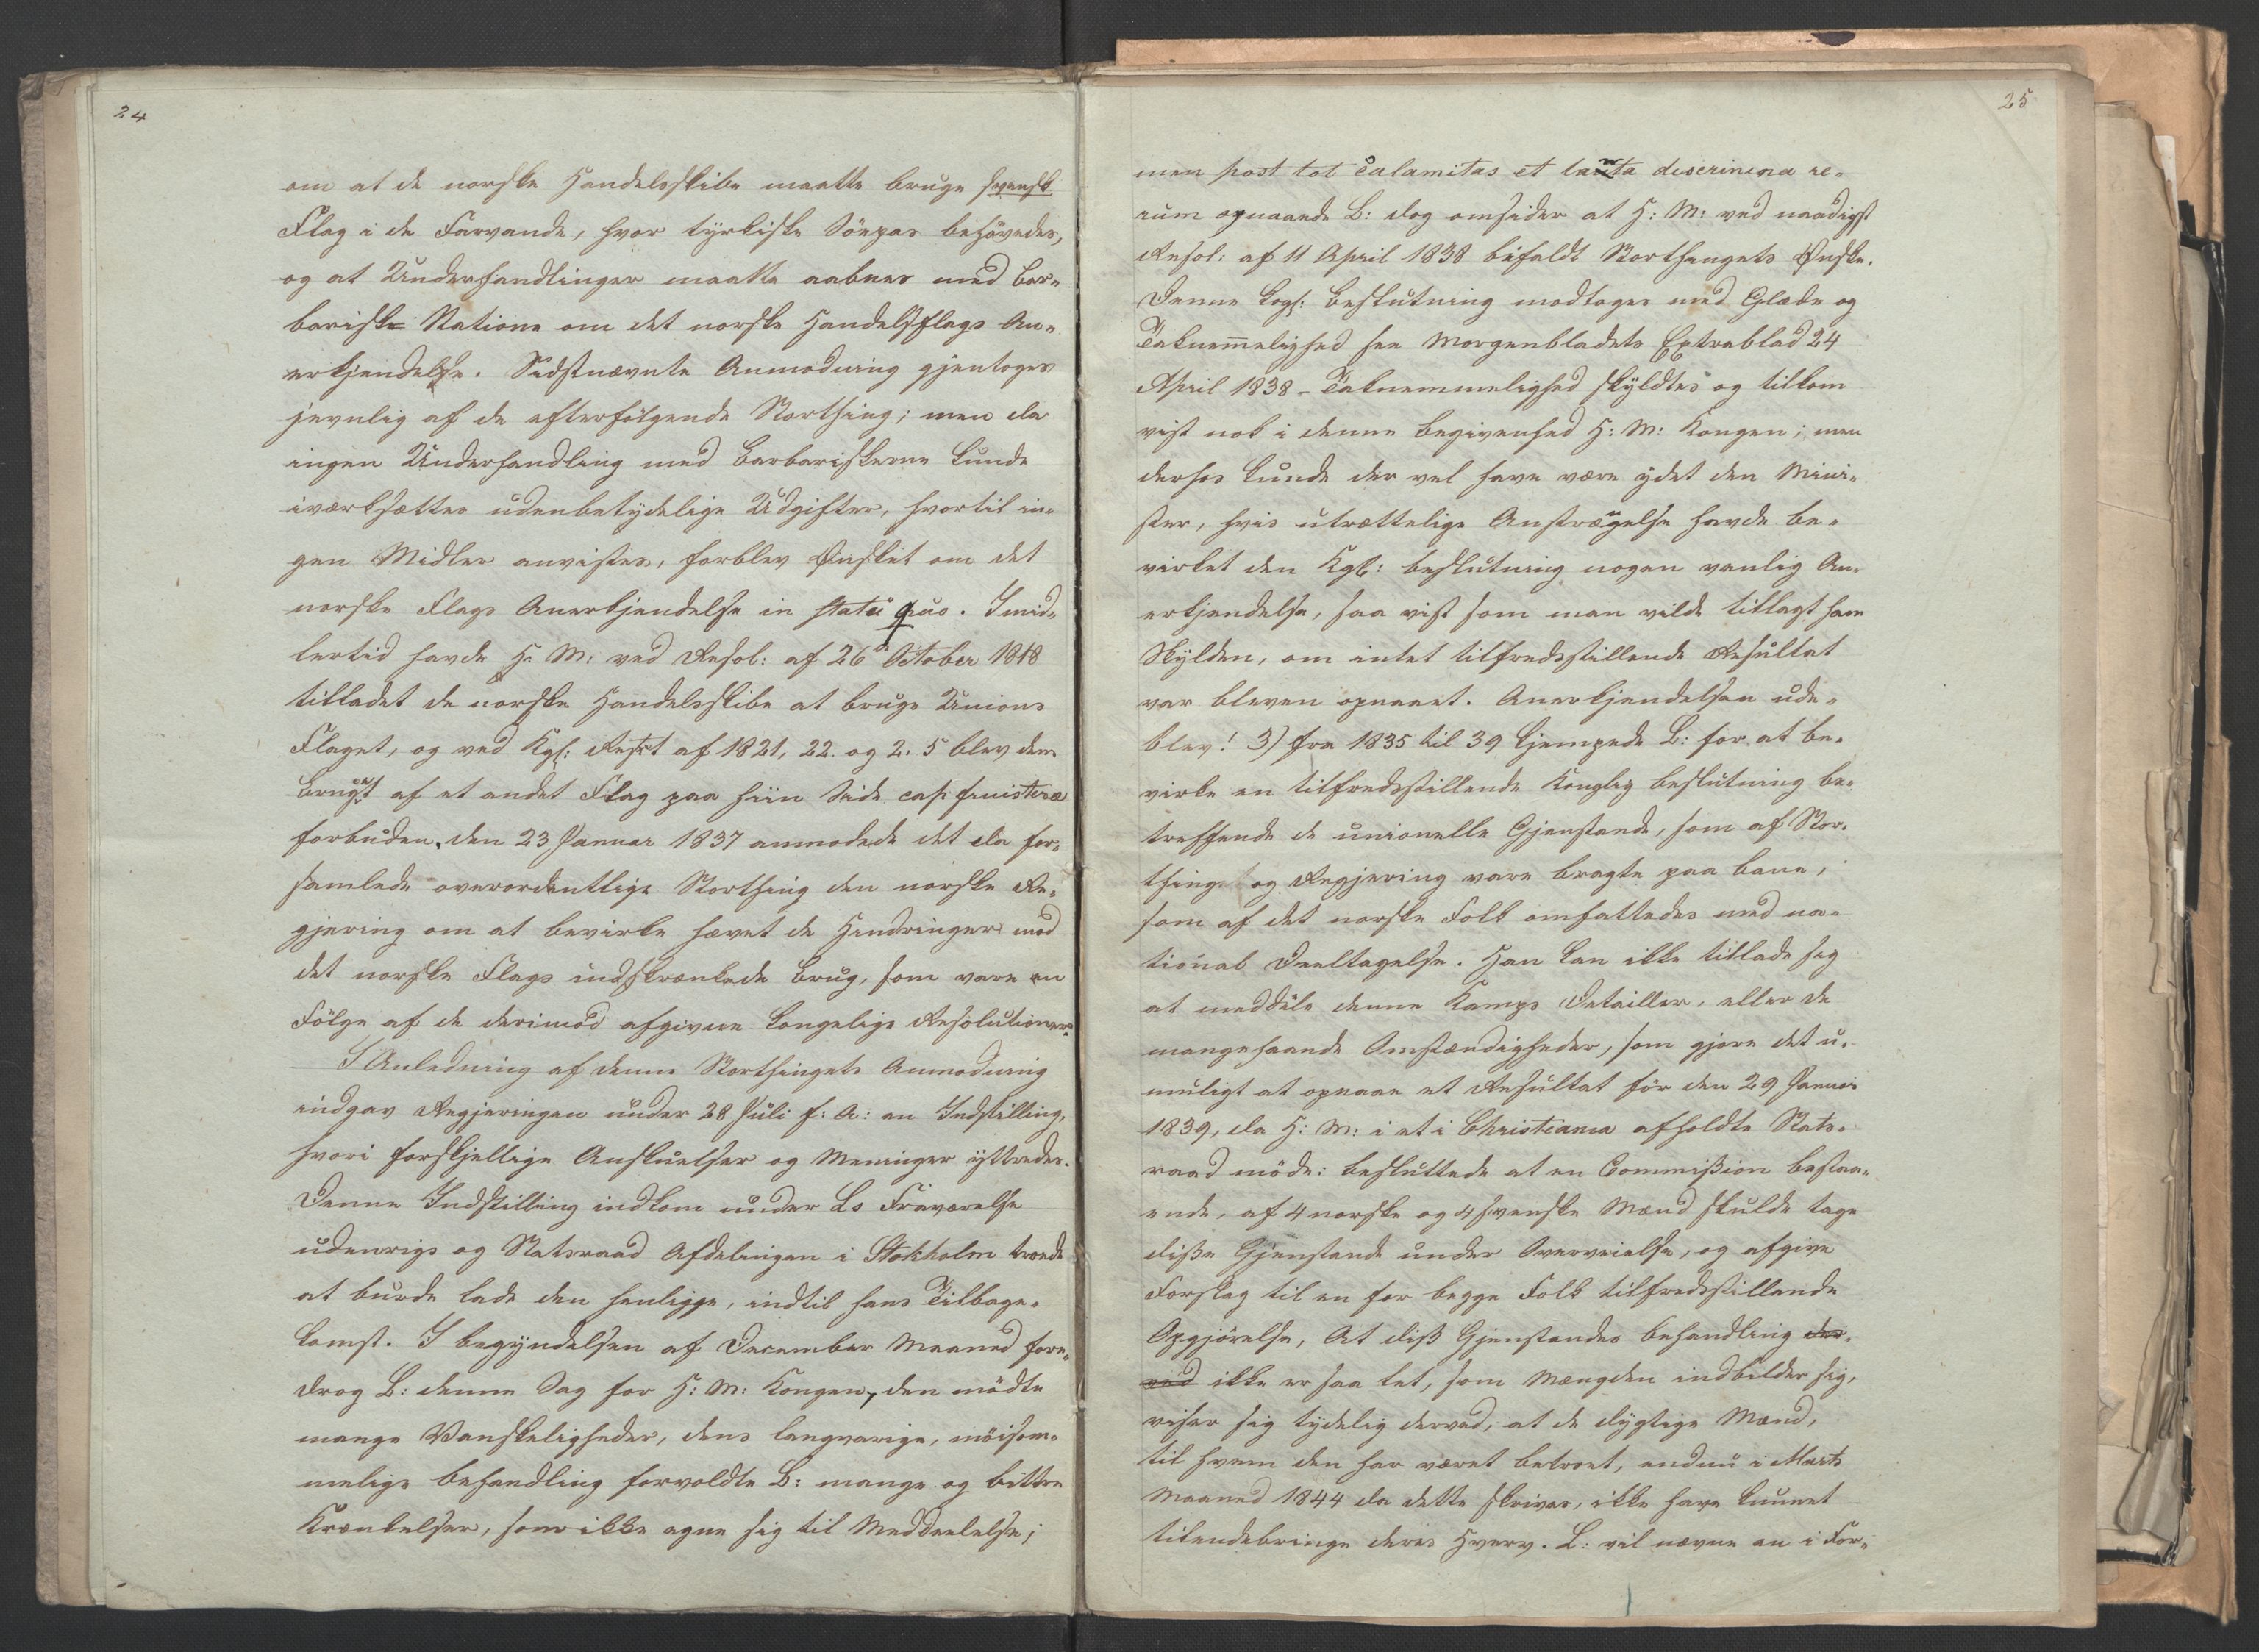 24
om at de norske Handelsskibe maatte bruge svensk
Flag i de Farvande, hvor tyrkiske Söepas behövedes,
og at Underhandlinger maatte aabnes med bar-
bariske Statione om det norske Handelsflags An-
erkjendelse. Sidstnævnte Anmodning gjentoges
jevnlig af de efterfölgende Storthing; men da
ingen Underhandling med Barbariskerne kunde
iværksættes udenbetydelige Udgifter, hvortil in-
gen Midler anvistes, forblev Ønsket om det
norske Flags Anerkjendelse in statu quo. Imid-
lertid havde H. M: ved Resol: af 26 October 1818
tilladet de norske Handelsskibe at bruge Unions
Flaget, og ved Kgl: Reskt af 1821, 22. og 2. 5 blev dem
Brugen af et andet Flag paa hiin Side cap finisteræ
forbuden. den 23 Januar 1837 anmodede det da for-
samlede overordentlige Storthing den norske Re-
gjering om at bevirke hævet de Hindringer mod
det norske Flags indskrænkede Brug, som vare en
Fölge af de derimod afgivne kongelige Resolutioner.
I Anledning af denne Storthingets Anmodning
indgav Regjeringen under 28 Juli f: A: en Indstilling,
hvori forskjellige Anskuelser og Meninger yttredes.
Denne Indstilling indkom under Ls Fraværelse
udenrigs og Statsraad Afdelingen i Stokholm troede
at burde lade den henligge, indtil hans Tilbage-
komst. I begyndelsen af December Maaned fore-
drog L: denne Sag for H: M: Kongen, den mödte
mange Vanskeligheder, dens langvarige, möisom-
melige behandling forvoldte L: mange og bittre
Krænkelser, som ikke egne sig til Meddeelelse;
25
men post tot calamitas et tanta discrimina re-
rum opnaaede L: dog omsider at H: M: ved naadigst
Resol: af 11 April 1838 bifaldt Storthingets Ønske.
Denne kogl: beslutning modtoges med Glæde og
Taknemmelighed see Morgenbladets Extrablad 24
April 1838 - Taknemmelighed skyldtes og tilkom
vist nok i denne begivenhed H: M: Kongen; men
derhos kunde der vel have være ydet den Mini-
ster, hvis utrættelige Anstrængelse havde be-
virket den Kgl: beslutning nogen venlig An-
erkjendelse, saa vist som man vilde tillagt ham
Skylden, om intet tilfredsstillende Resultat
var bleven opnaaet. Anerkjendelsen ude-
blev! 3) fra 1835 til 39 kjempede L: for at be-
virke en tilfredsstillende Konglig beslutning be-
treffende de unionelle Gjenstande, som af Stor-
thing og Regjering vare bragte paa bane,
som af det norske Folk omfattedes med na-
tional Deeltagelse. Han kan ikke tillade sig
at meddele denne Kamps Detailler, eller de
mangehaande Omstændigheder, som gjore det u-
muligt at opnaae et Resultat för den 29 Januar
1839, da H: M: i et i Christiania afholdte Stats-
raad möde: besluttede at en Commission bestaa-
ende, af 4 norske og 4 svenske Mænd skulde tage
disse Gjenstande under Overveielse, og afgive
Forslag til en for begge Folk tilfredsstillende
Opgjörelse, At diss Gjenstandes behandling der-
ved ikke er saa let, som Mængden indbilder sig,
viser sig tydelig derved, at de dygtige Mænd,
til hvem den har været betroet, endnu i Marts
Maaned 1844 da dette skrives, ikke have kunnet
tilendebringe deres Hverv. L: vil nævne en i For-